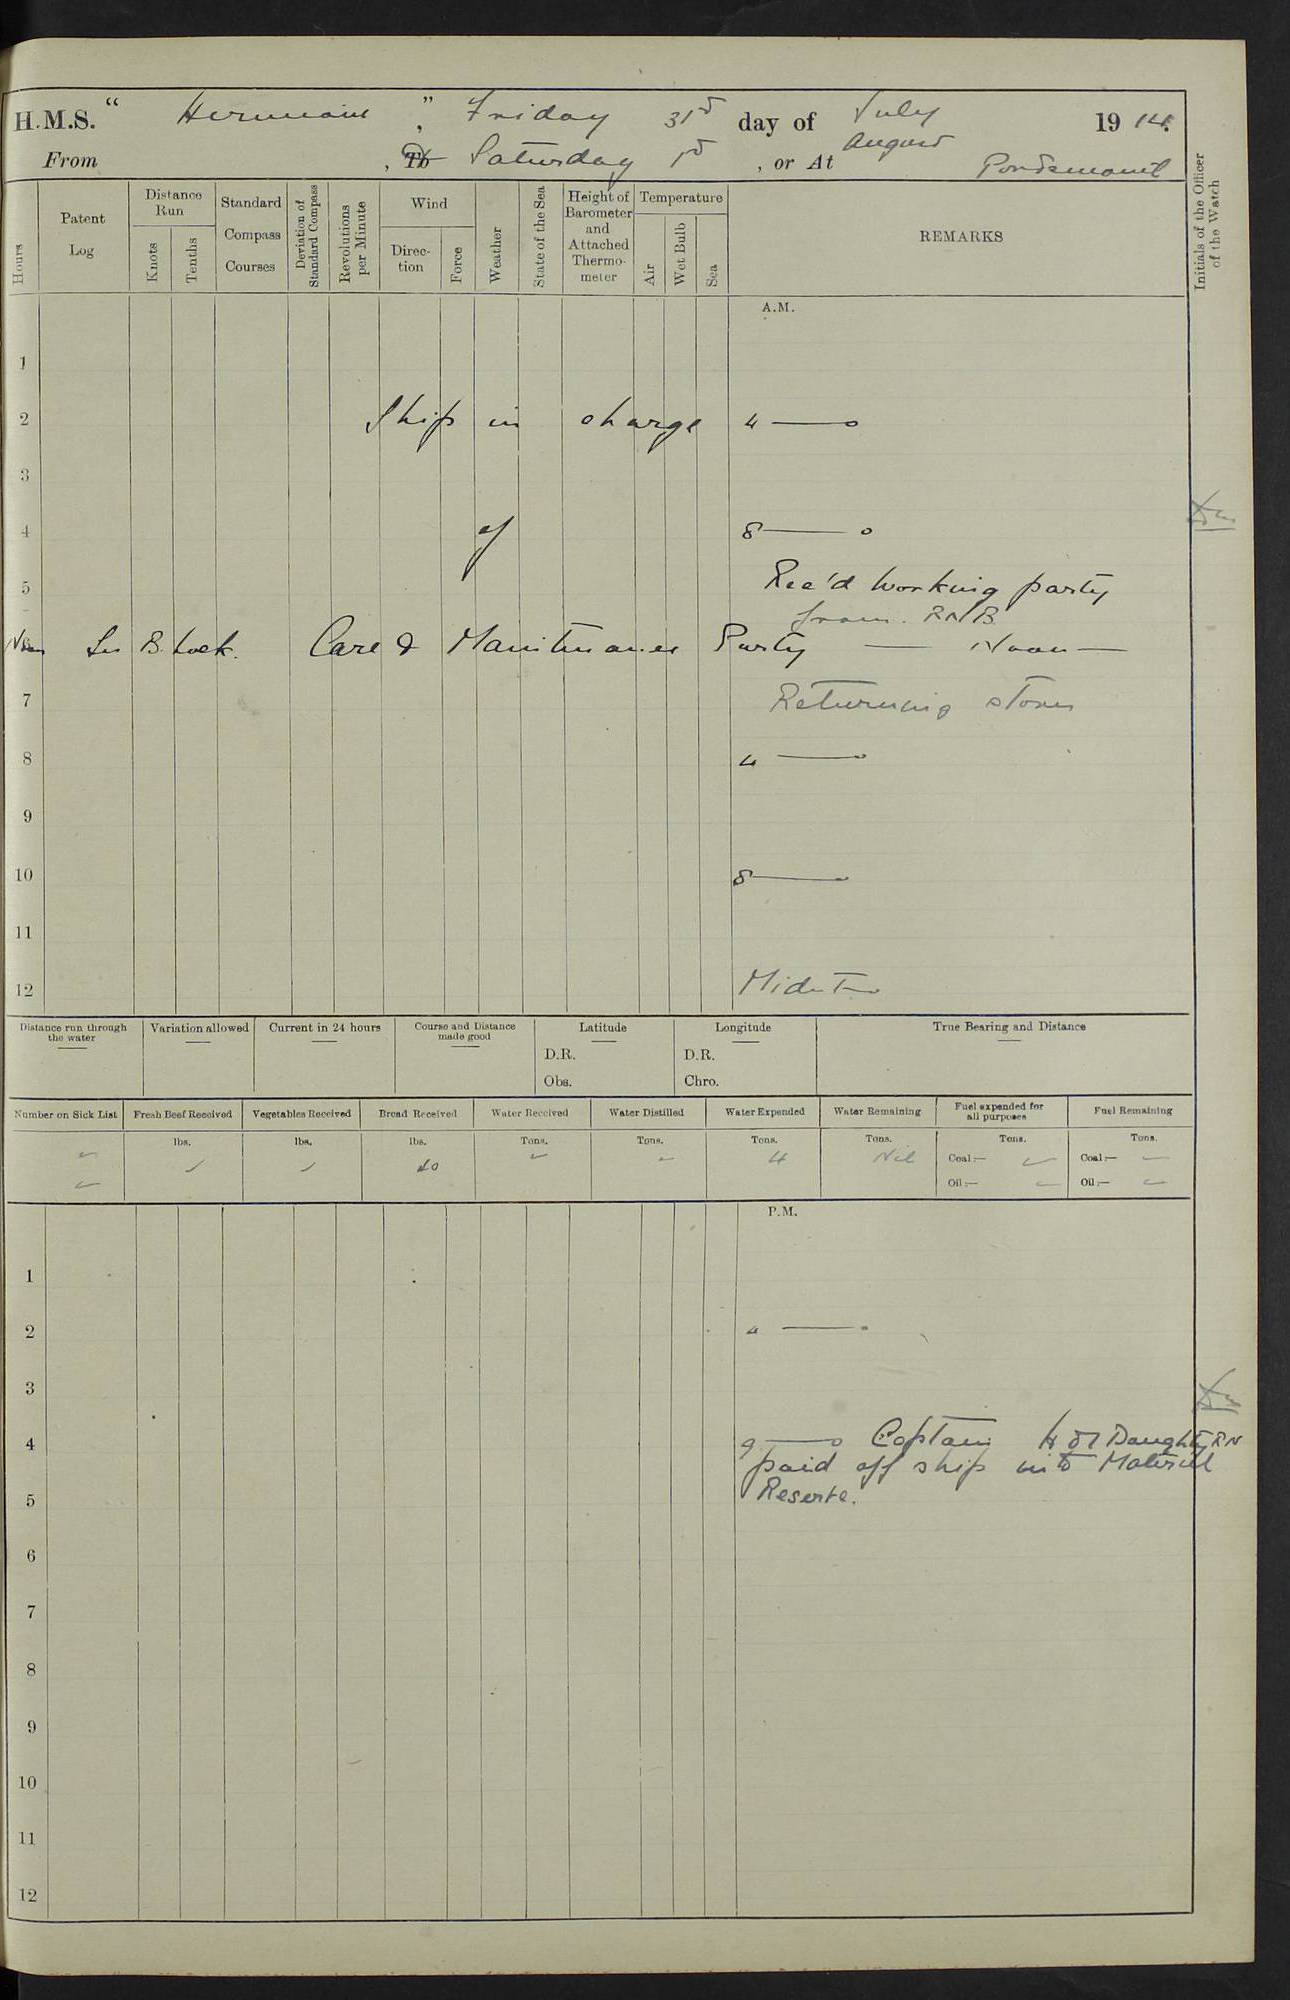 H.M.S. " Hermione " , Friday 31st day of July 1914.
From , To Saturday 1st , or At August Portsmouth
Hours
Patent Log
Distance Run
Knots
Tenths
Standard Compass Courses
Deviation of Standard Compass
Revolutions per Minute
Wind
Direction
Force
Weather
State of the Sea
Height of Barometer and Attached Thermometer
Temperature
Air
Wet Bulb
Sea
REMARKS
Initials of the Officer of the Watch
A.M.
1
2 Ship in charge 4 —— o
3
4 of 8 —— o
5 Rec'd working party
from R.N.B.
Noon In B. Lock. Care & Maintenance Party — Noon —
7 Returning stores
8 4 ——
9
10 8 ——
11
12 Midt —
Distance run through the water
Variation allowed
Current in 24 hours
Course and Distance made good
Latitude
D.R.
Obs.
Longitude
D.R.
Chro.
True Bearing and Distance
Number on Sick List
Fresh Beef Received
lbs.
Vegetables Received
lbs.
Bread Received
lbs.
40
Water Received
Tons.
Water Distilled
Tons.
Water Expended
Tons.
4
Water Remaining
Tons.
Nil
Fuel expended for all purposes
Tons.
Coal:—
Oil:—
Fuel Remaining
Tons.
Coal:—
Oil:—
P.M.
1
2 4 ——
3
4 9 —— o Captain H Daughty RN
paid off ship into Material
5 Reserve.
6
7
8
9
10
11
12